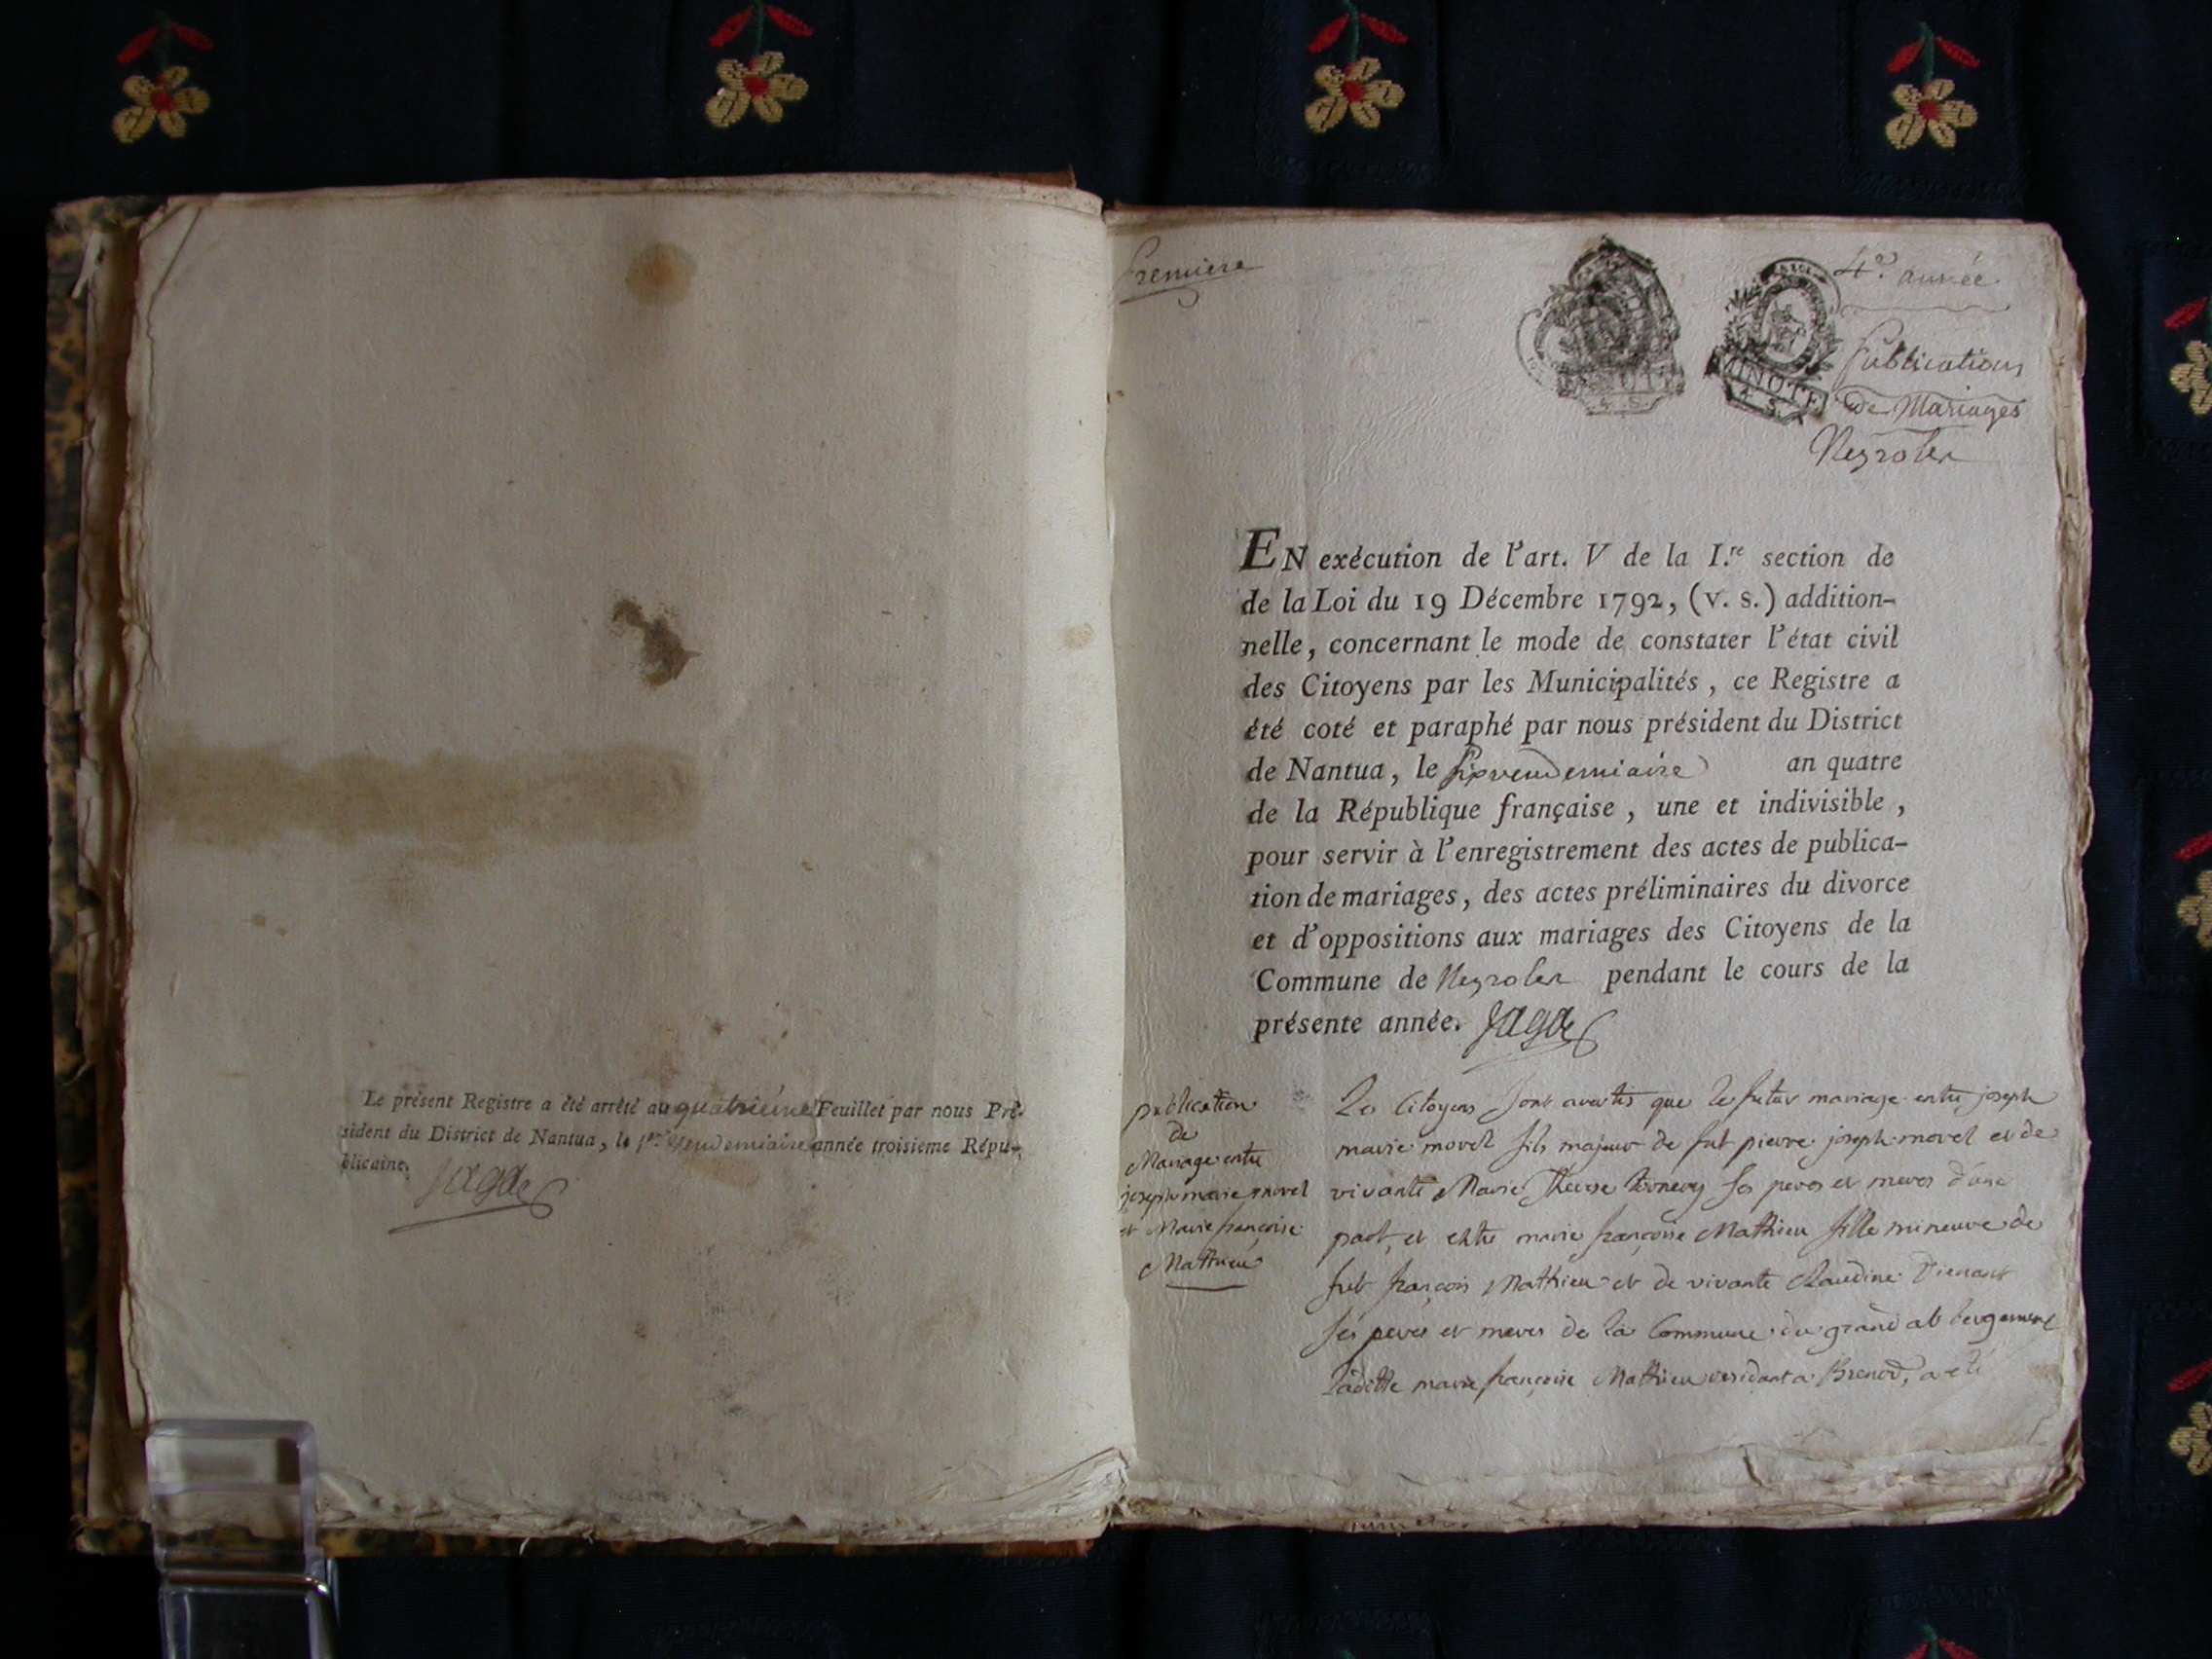 Le présent Registre a été arrêté au quatrieme Feuillet par nous Pré-
sident du District de Nantua, le 1er Vendemiaire année troisieme Répu-
blicaine.
Jagot
Premiere
4e année
Publications
de Mariages
Neyrolles
MINOTE
4 S.
EN exécution de l'art. V de la I.re section de
de la Loi du 19 Décembre 1792, (v. s.) addition-
nelle, concernant le mode de constater l'état civil
des Citoyens par les Municipalités, ce Registre a
été coté et paraphé par nous président du District
de Nantua, le vendemiaire an quatre
de la République française, une et indivisible,
pour servir à l'enregistrement des actes de publica-
tion de mariages, des actes préliminaires du divorce
et d'oppositions aux mariages des Citoyens de la
Commune de Neyrolles pendant le cours de la
présente année. Jagot
publication
de
Mariage entre
joseph marie morel
et Marie françoise
Mathieu
Les Citoyens sont avertis que le futur mariage entre joseph
marie morel fils majeur de fut pierre joseph morel et de
vivante Marie Therese ses peres et meres d'une
part, et entre marie françoise Mathieu fille mineure de
fut françois Mathieu et de vivante Claudine
ses peres et meres de la Commune du grand abbergement
laditte marie françoise Mathieu residant a Brenod, a été